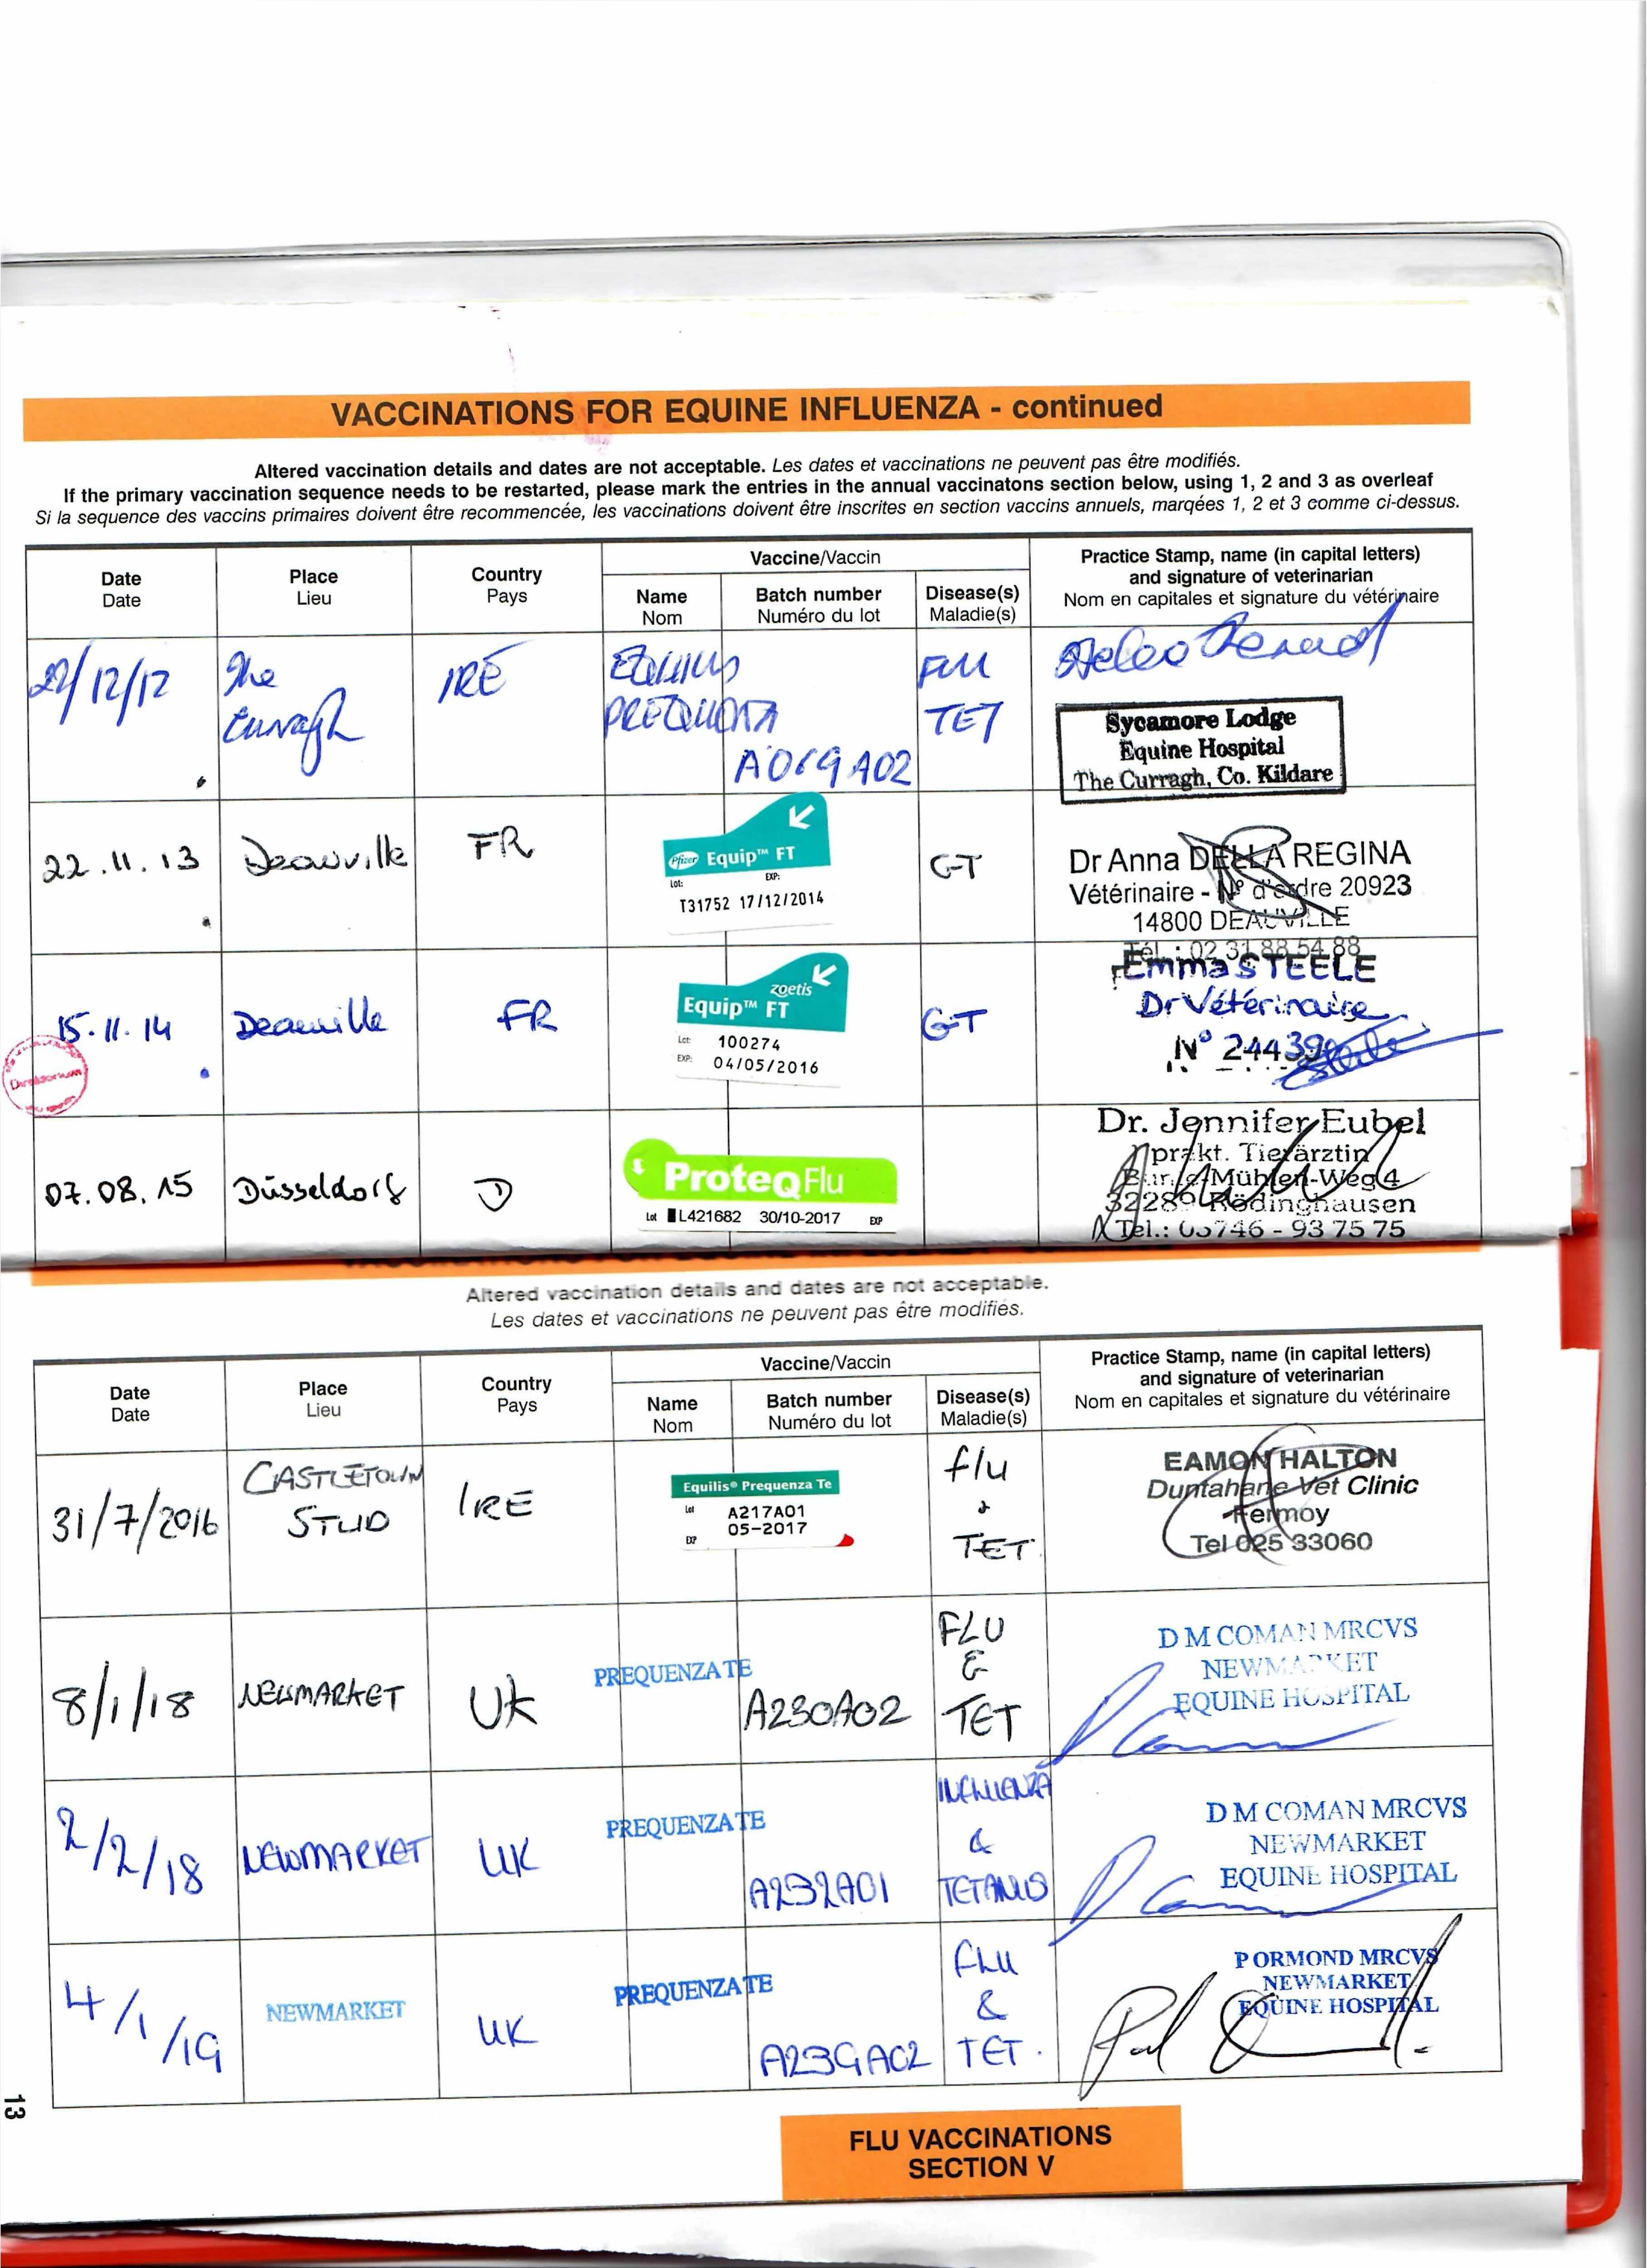 VACCINATIONS FOR EQUINE INFLUENZA - continued
Altered vaccination details and dates are not acceptable. Les dates et vaccinations ne peuvent pas être modifiés.
If the primary vaccination sequence needs to be restarted, please mark the entries in the annual vaccinatons section below, using 1, 2 and 3 as overleaf
Si la sequence des vaccins primaires doivent être recommencée, les vaccinations doivent être inscrites en section vaccins annuels, marqées 1, 2 et 3 comme ci-dessus.
Date
Date
Place
Lieu
Country
Pays
Vaccine/Vaccin
Name
Nom
Batch number
Numéro du lot
Disease(s)
Maladie(s)
Practice Stamp, name (in capital letters)
and signature of veterinarian
Nom en capitales et signature du vétérinaire
/12/12
The
Curragh
IRE
FLU
TET
Sycamore Lodge
Equine Hospital
The Curragh, Co. Kildare
22.11.13
Deauville
FR
Pfizer Equip™ FT
Lot: EXP:
T31752 17/12/2014
GT
Dr Anna DELLA REGINA
Vétérinaire - N° d'ordre 20923
14800 DEAUVILLE
Tél. : 02 31 88 54 88
15.11.14
Deauville
FR
zoetis
Equip™ FT
Lot: 100274
EXP: 04/05/2016
GT
Emma STEELE
Dr Vétérinaire
N° 24439
07.08.15
Düsseldorf
D
ProteqFlu
Lot L421682 30/10-2017 EXP
Dr. Jennifer Eubel
prakt. Tierärztin
-Mühlen-Weg 4
32289 Rödinghausen
Tel.: 05746 - 93 75 75
Altered vaccination details and dates are not acceptable.
Les dates et vaccinations ne peuvent pas être modifiés.
Date
Date
Place
Lieu
Country
Pays
Vaccine/Vaccin
Name
Nom
Batch number
Numéro du lot
Disease(s)
Maladie(s)
Practice Stamp, name (in capital letters)
and signature of veterinarian
Nom en capitales et signature du vétérinaire
31/7/2016
CASTLETOWN
STUD
IRE
Equilis® Prequenza Te
Lot A217A01
05-2017
EXP
flu
&
TET.
EAMON HALTON
Duntahane Vet Clinic
Fermoy
Tel 025 33060
8/1/18
NEWMARKET
UK
PREQUENZA TE
A230A02
FLU
&
TET
D M COMAN MRCVS
NEWMARKET
EQUINE HOSPITAL
2/2/18
NEWMARKET
UK
PREQUENZA TE
A232A01
INFLUENZA
&
TETANUS
D M COMAN MRCVS
NEWMARKET
EQUINE HOSPITAL
4/1/19
NEWMARKET
UK
PREQUENZA TE
A239A02
FLU
&
TET.
P ORMOND MRCVS
NEWMARKET
EQUINE HOSPITAL
13
FLU VACCINATIONS
SECTION V